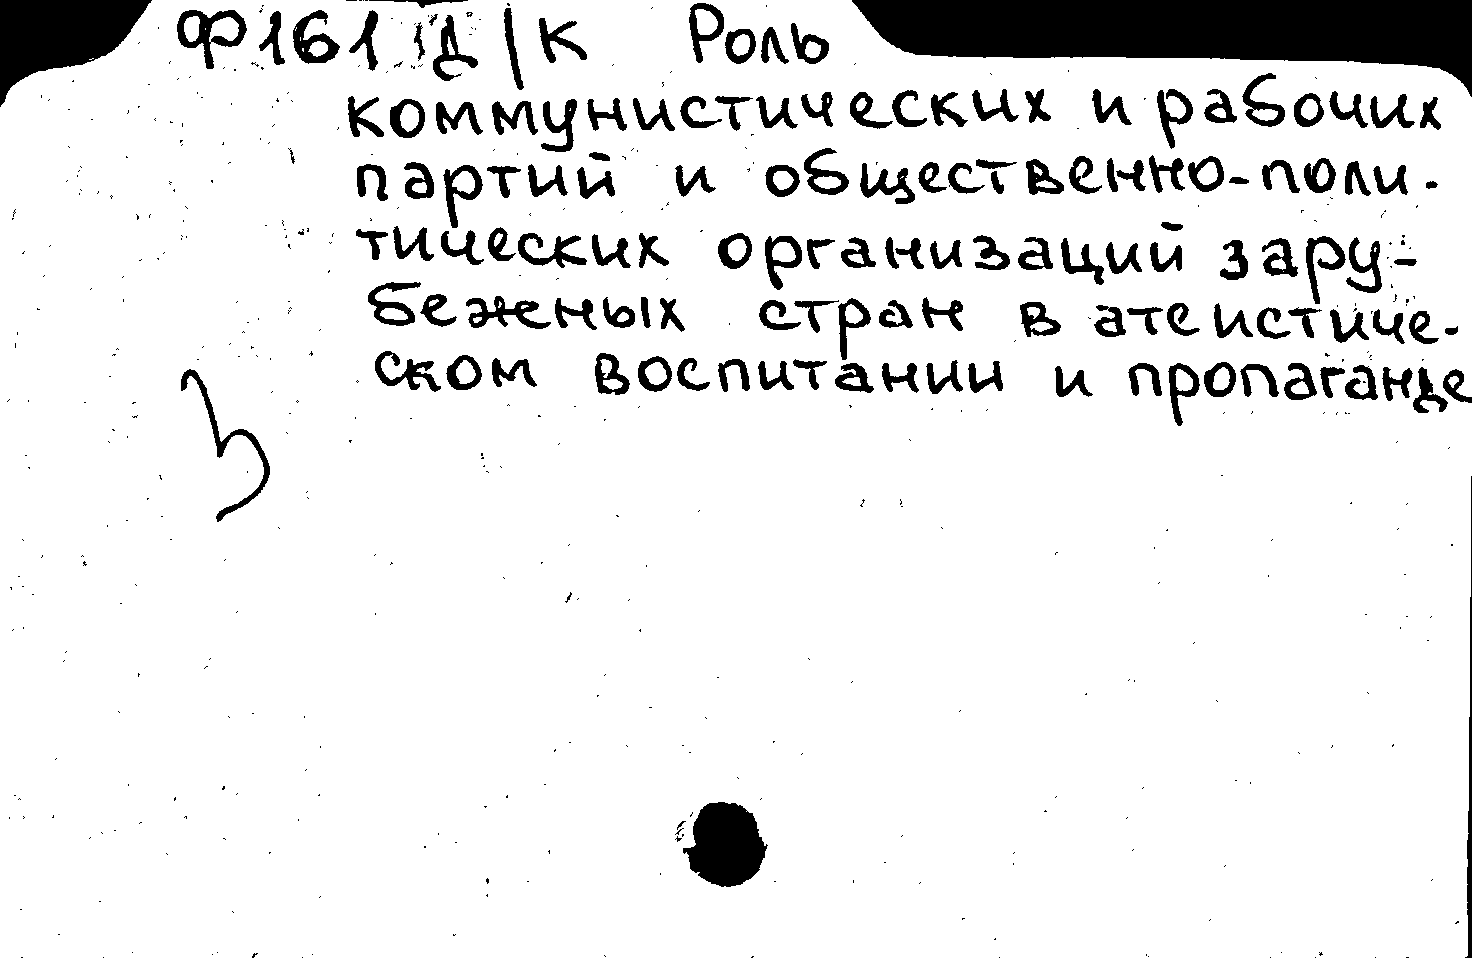 Ф161 Д/К Роль
коммунистических и рабочих
партий и общественно-поли-
тических организаций зару-
беженых стран в атеистиче-
ском воспитании и пропаганде